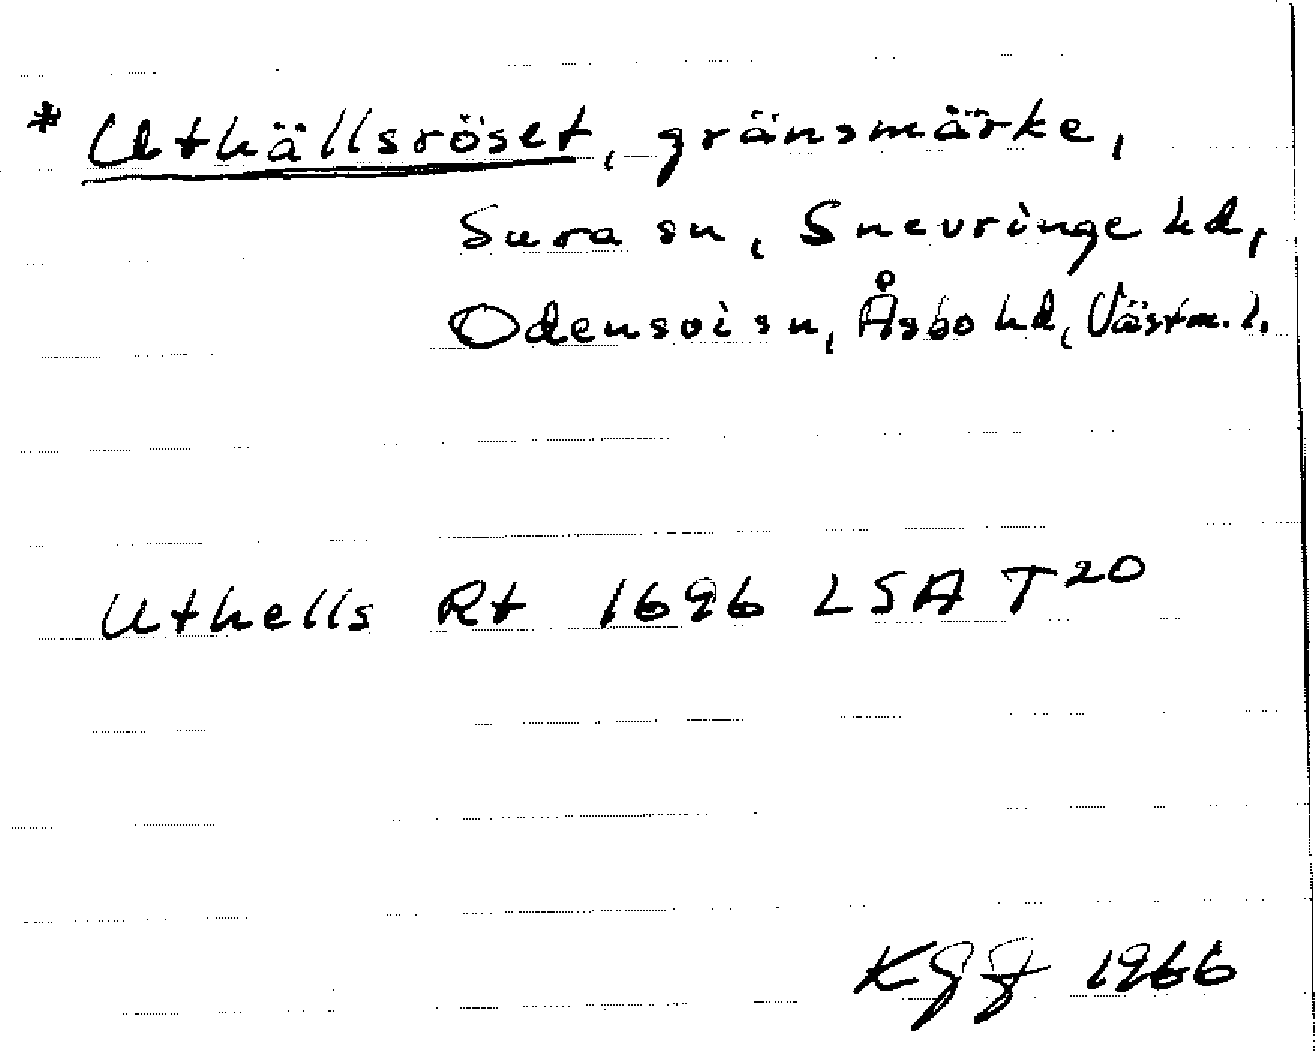 * Uthällsröset, gränsmärke,
Sura sn, Snevringe hd,
Odensvi sn, Åsbo hd, Västm. l.
Uthells Rt 1696 LSA T20
KGJ 1966